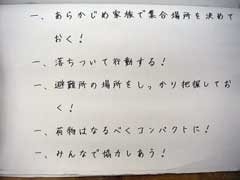 一、あらかじめ家族で集合場所を決めて
おく！
一、落ちついて行動する！
一、避難所の場所をしっかり把握してお
く！
一、荷物はなるべくコンパクトに！
一、みんなで協力しあう！